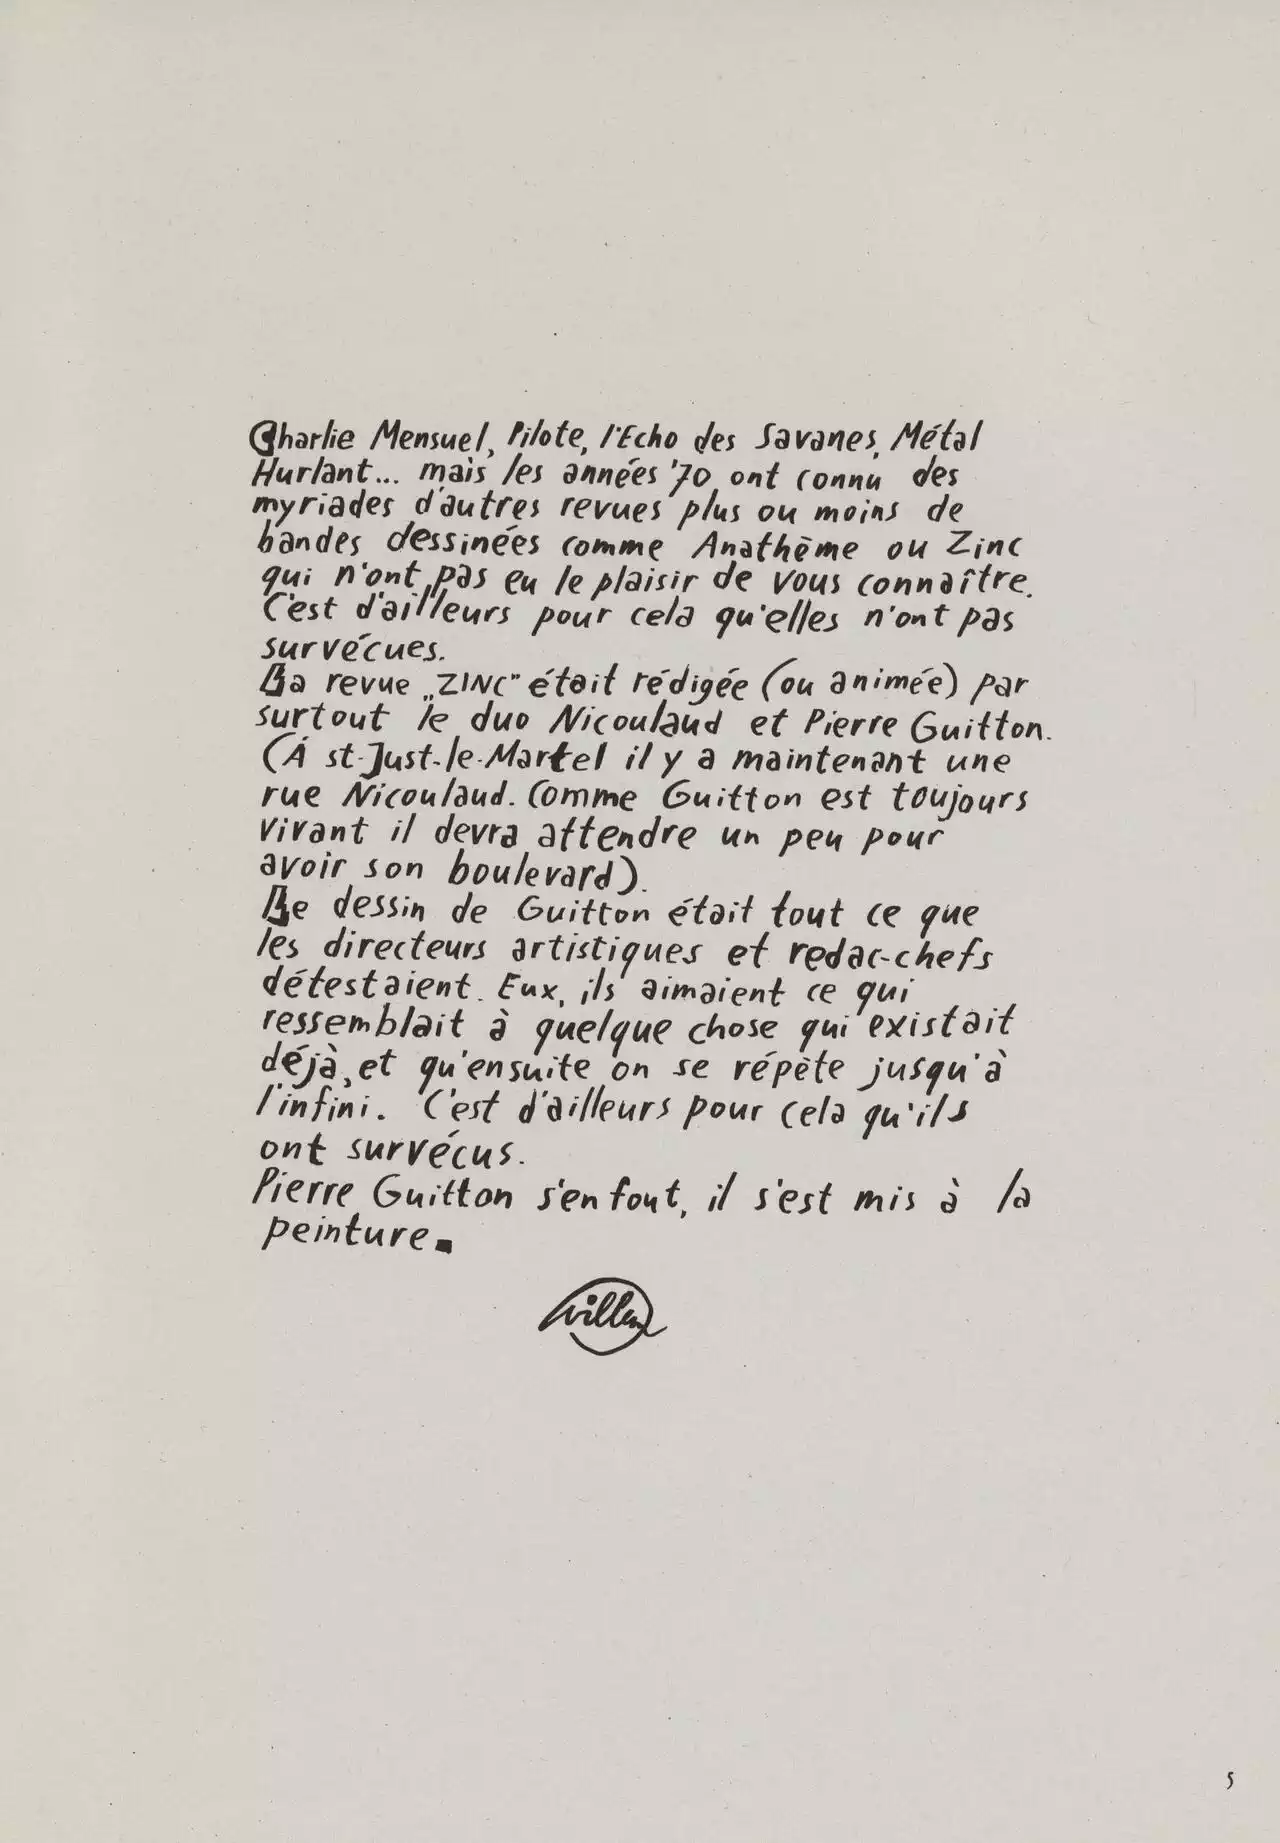 Charlie Mensuel, Pilote, l'Echo des Savanes, Métal
Hurlant... mais les années '70 ont connu des
myriades d'autres revues plus ou moins de
bandes dessinées comme Anathème ou Zinc
qui n'ont pas eu le plaisir de vous connaître.
C'est d'ailleurs pour cela qu'elles n'ont pas
survécues.
La revue „ZINC" était rédigée (ou animée) par
surtout le duo Nicoulaud et Pierre Guitton.
(Á st-Just-le-Martel il y a maintenant une
rue Nicoulaud. Comme Guitton est toujours
vivant il devra attendre un peu pour
avoir son boulevard).
Le dessin de Guitton était tout ce que
les directeurs artistiques et redac-chefs
détestaient. Eux, ils aimaient ce qui
ressemblait à quelque chose qui existait
déjà, et qu'ensuite on se répète jusqu'à
l'infini. C'est d'ailleurs pour cela qu'ils
ont survécus.
Pierre Guitton s'en fout, il s'est mis à la
peinture.
Willem
5